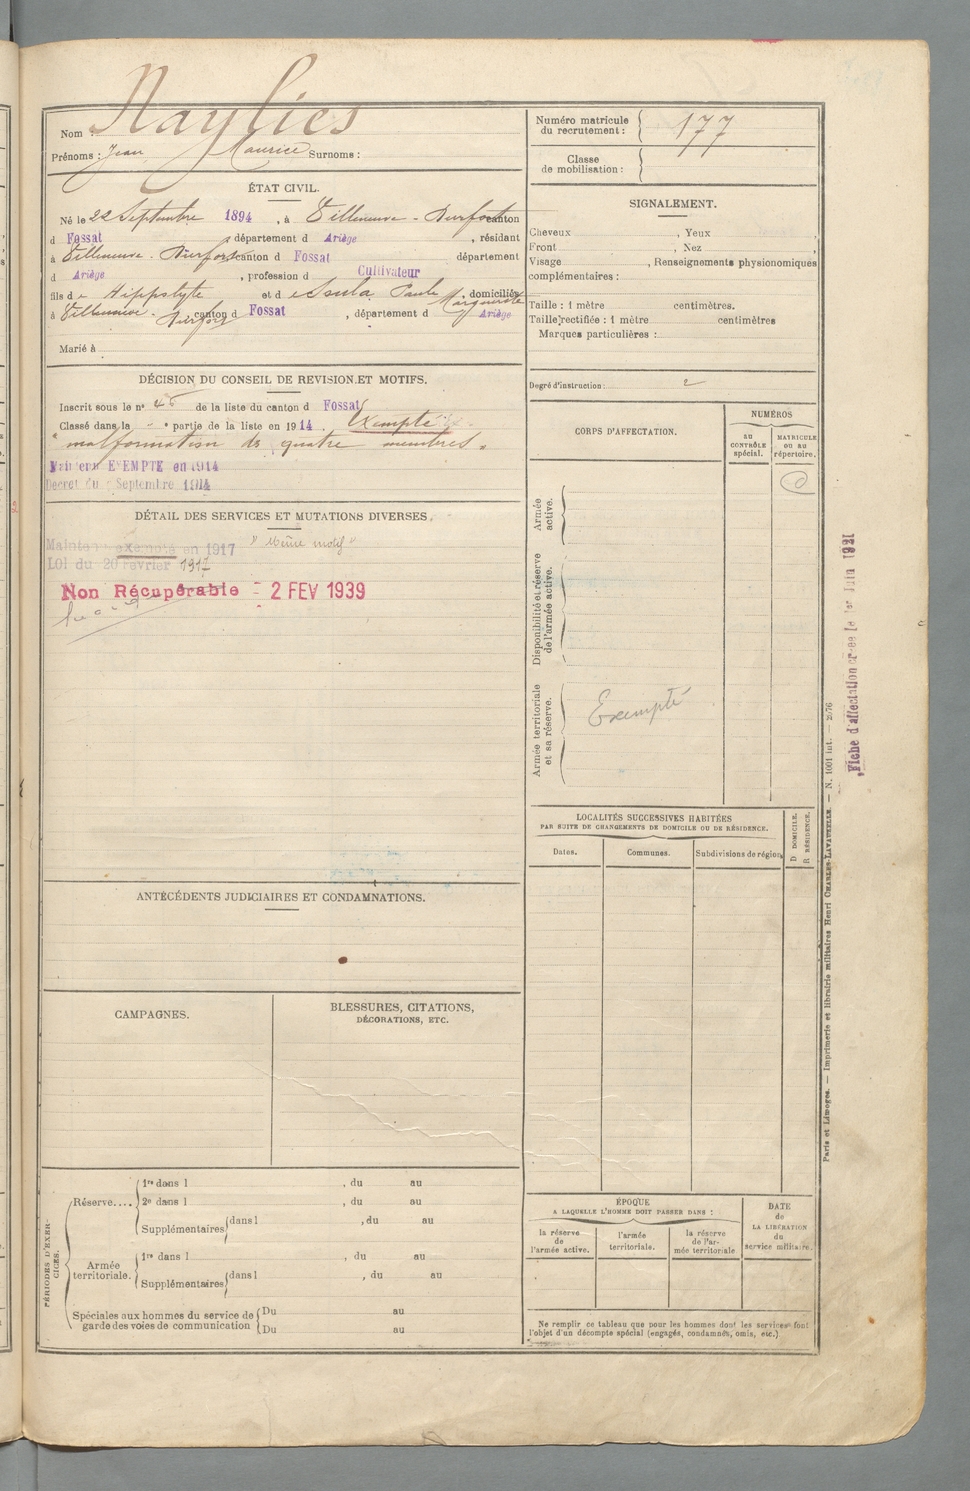 Nom : Naylies
Prénoms : Jean Maurice Surnoms :
ÉTAT CIVIL.
Né le 22 Septembre 1894, à Villeneuve-Durfort canton
d Fossat, département d Ariège, résidant
à Villeneuve-Durfort canton d Fossat département
d Ariège, profession d Cultivateur
fils de Hippolyte et de Soula Paule Marguerite, domiciliés
à Villeneuve-Durfort, canton d Fossat, département d Ariège
Marié à
DÉCISION DU CONSEIL DE REVISION ET MOTIFS.
Inscrit sous le n° 45 de la liste du canton d Fossat
Classé dans la e partie de la liste en 1914. Exempté
"malformation des quatre membres"
Maintenu EXEMPTE en 1914
Décret du Septembre 1914
DÉTAIL DES SERVICES ET MUTATIONS DIVERSES.
Maintenu exempté en 1917 "Même motif"
LOI du 20 Février 1917
Non Récupérable - 2 FEV 1939
ANTÉCÉDENTS JUDICIAIRES ET CONDAMNATIONS.
CAMPAGNES.
BLESSURES, CITATIONS,
DÉCORATIONS, ETC.
PÉRIODES D'EXERCICES.
Réserve....
1re dans l , du au
2e dans l , du au
Supplémentaires dans l , du au
Armée territoriale.
1re dans l , du au
Supplémentaires dans l , du au
Spéciales aux hommes du service de
garde des voies de communication
Du au
Du au
Numéro matricule
du recrutement : 177
Classe
de mobilisation :
SIGNALEMENT.
Cheveux , Yeux ,
Front , Nez ,
Visage , Renseignements physionomiques
complémentaires :
Taille : 1 mètre centimètres.
Taille rectifiée : 1 mètre centimètres
Marques particulières :
Degré d'instruction : 2
CORPS D'AFFECTATION.
NUMÉROS
au
CONTRÔLE
spécial.
MATRICULE
ou au
répertoire.
Armée
active.
Disponibilité et réserve
de l'armée active.
Armée territoriale
et sa réserve.
Exempté
LOCALITÉS SUCCESSIVES HABITÉES
PAR SUITE DE CHANGEMENTS DE DOMICILE OU DE RÉSIDENCE.
Dates.
Communes.
Subdivisions de région
D DOMICILE.
R RÉSIDENCE.
ÉPOQUE
A LAQUELLE L'HOMME DOIT PASSER DANS :
la réserve
de
l'armée active.
l'armée
territoriale.
la réserve
de l'ar-
mée territoriale
DATE
de
LA LIBÉRATION
du
service militaire.
Ne remplir ce tableau que pour les hommes dont les services font
l'objet d'un décompte spécial (engagés, condamnés, omis, etc.)
Paris et Limoges. — Imprimerie et librairie militaires Henri CHARLES-LAVAUZELLE. — N. 1001 int. — 2576
Fiche d'affectation créée le 1er Juin 1921